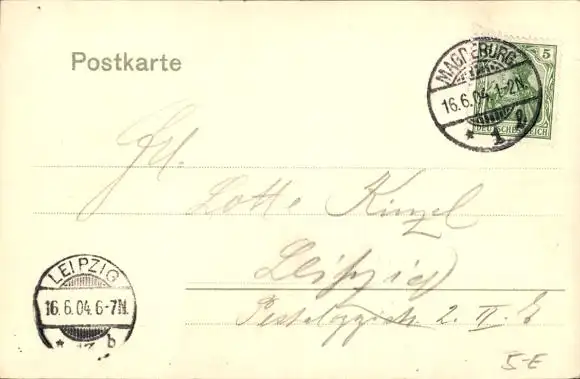 Postkarte
MAGDEBURG
16.6.04.1-2N.
* 1 l
5
DEUTSCHES REICH
Frl.
Lotte Kinzel
Leipzig
Pestalozzistr. 2. II. l.
LEIPZIG
16.6.04.6-7N.
* 13 b
5-E